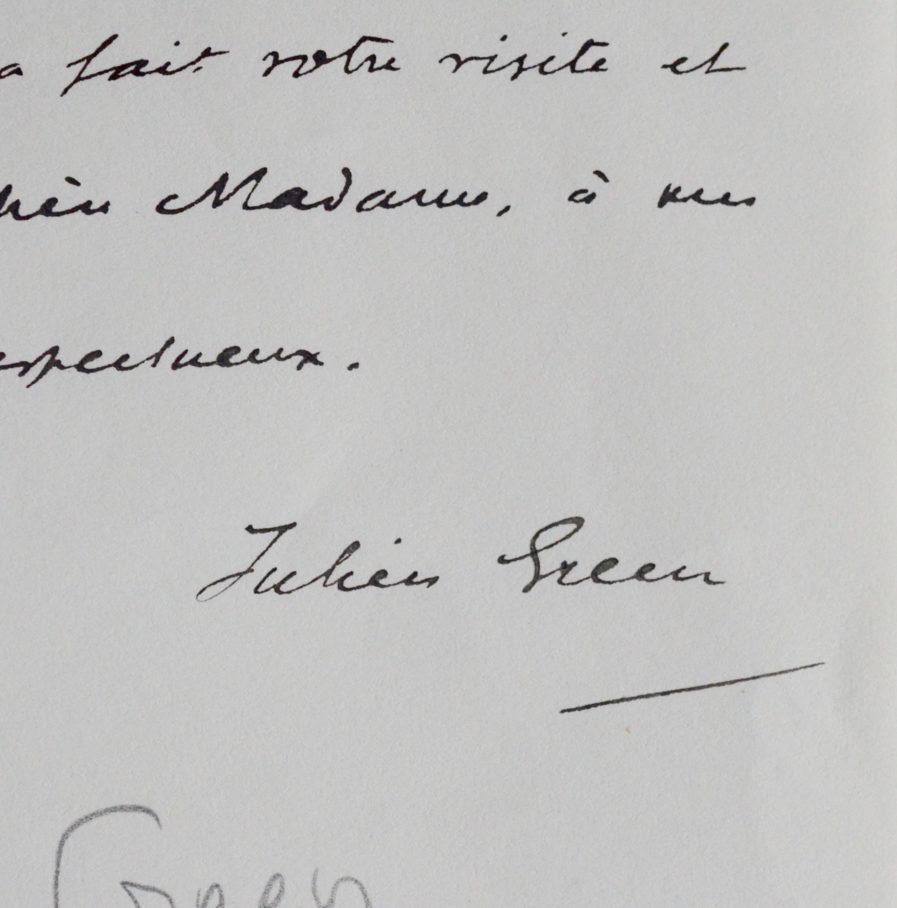 a fait votre visite et
chère Madame, à mes
respectueux.
Julien Green
Green